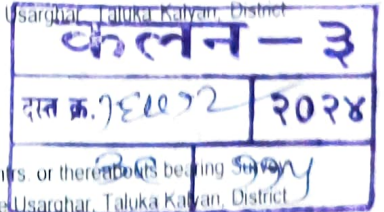 Usarghar, Taluka Kalyan, District
कलन - ३
दस्त क्र. २०२४
rs. or thereabouts bearing Survey
Usarghar, Taluka Kalyan, District